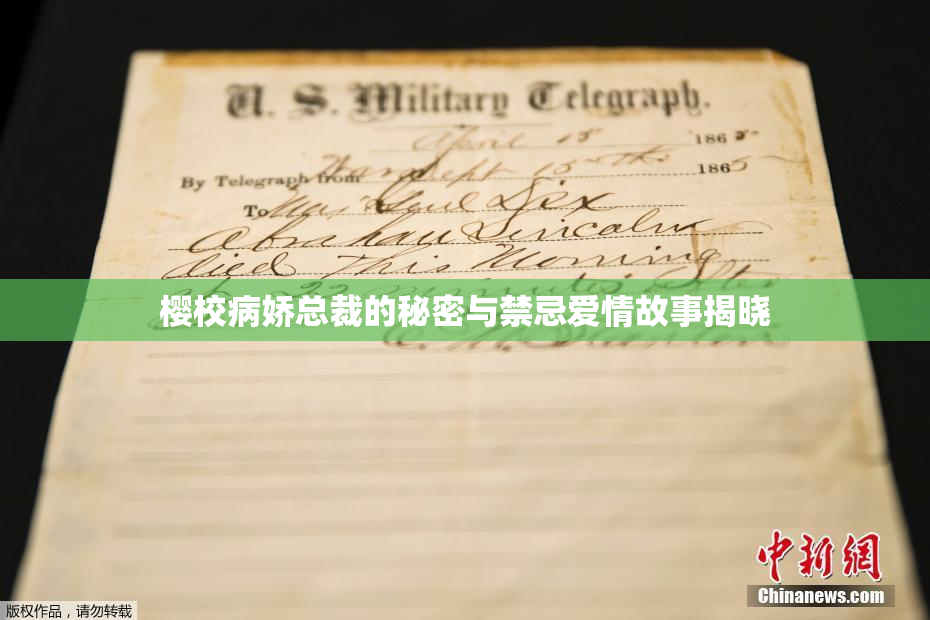 U. S. Military Telegraph.
April 15 1865
By Telegraph from War Dept 15th 1865
To Maj Genl Dix
Abraham Lincoln
died This Morning
at 22 minutes after
樱校病娇总裁的秘密与禁忌爱情故事揭晓
E. M. Stanton
中新网
Chinanews.com
版权作品，请勿转载